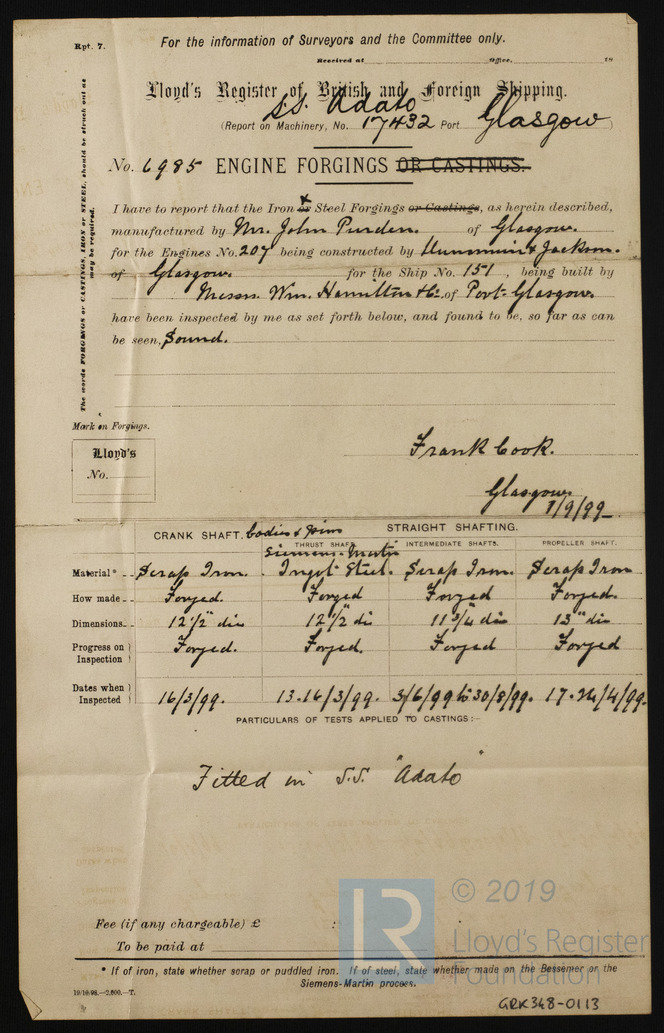 Rpt. 7.
For the information of Surveyors and the Committee only.
Received at Office. 18
Lloyd's Register of British and Foreign Shipping.
S.S. Adato
(Report on Machinery, No. 17432 Port Glasgow)
No. 6985 ENGINE FORGINGS OR CASTINGS.
The words FORGINGS or CASTINGS, IRON or STEEL, should be struck out as may be required.
I have to report that the Iron & or Steel Forgings or Castings, as herein described,
manufactured by Mr. John Purden. of Glasgow.
for the Engines No. 207 being constructed by & Jackson.
of Glasgow. for the Ship No. 151, being built by
Messrs. Wm. Hamilton & Co. of Port-Glasgow.
have been inspected by me as set forth below, and found to be, so far as can
be seen, Sound.
Mark on Forgings.
Lloyd's
No.
Frank Cook.
Glasgow.
1/9/99
CRANK SHAFT. bodies & pins STRAIGHT SHAFTING.
THRUST SHAFT. INTERMEDIATE SHAFTS. PROPELLER SHAFT.
Siemens-Martin
Material* Scrap Iron. Ingot Steel. Scrap Iron. Scrap Iron
How made Forged. Forged Forged Forged.
Dimensions 12 1/2" dia 12 1/2" dia 11 3/4" dia 13" dia
Progress on Inspection Forged. Forged. Forged Forged
Dates when Inspected 16/3/99. 13.16/3/99. 3/6/99 to 30/8/99. 17-24/4/99.
PARTICULARS OF TESTS APPLIED TO CASTINGS:-
Fitted in S.S. "Adato"
Fee (if any chargeable) £ :
To be paid at
* If of iron, state whether scrap or puddled iron. If of steel, state whether made on the Bessemer or the
Siemens-Martin process.
19/10/98.—2,000.—T.
GRK348-0113
LR
© 2019
Lloyd's Register
Foundation